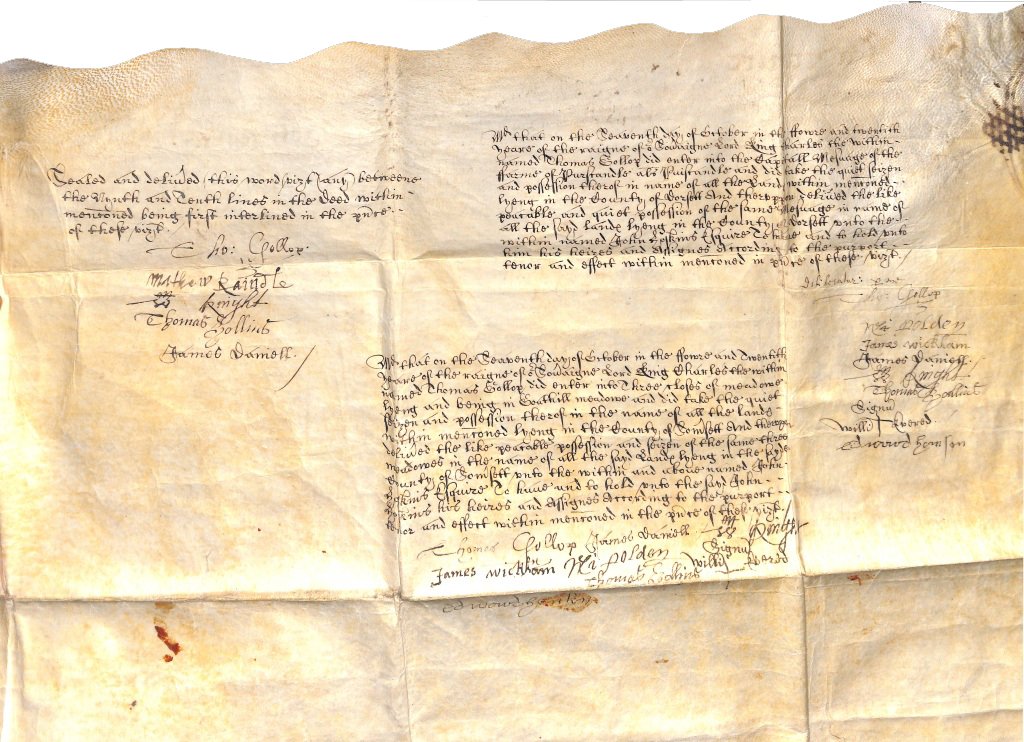 Sealed and delived (this word vizt (any) betweene
the Nynth and Tenth lines in the deed within
mentoned being first interlined in the pnce
of these vizt.
Tho: Gollop
Mathew Randle
Knight
Thomas Hollins
James Daniell
Md that on the Seaventh day of October in the ffowre and twentith
yeare of the raigne of or Sovaigne Lord King Charles the within
named Thomas Gollop did enter into the Capitall Mesuage of the
ffarme of Purstandle als Puistandle and did take the quiet seizen
and possession therof in name of all the Land within mentoned
lyeng in the County of Dorsett And theruppon delived the like
peacable and quiet possession of the same Mesuage in name of
all the said Lands lyeng in the County of Dorsett vnto the
within named John Hoskins Esquire To have and to hold vnto
him his heires and Assignes According to the purport
tenor and effect within mentoned in pnce of these vizt.
Tho: Gollop
Ni Polden
James Wickham
James Daniell
Knight
Thomas Hollins
Signu
Willi Evered
Edward
Md that on the Seaventh day of October in the ffowre and Twentith
yeare of the raigne of or Sovaigne Lord King Charles the within
named Thomas Gollop did enter into Three closes of meadowe
lyeng and being in Coathill meadowe and did take the quiet
seizen and possession therof in the name of all the lands
within mentoned lyeng in the County of Somsett And theruppon
delived the like peacable possession and seizen of the same three
meadowes in the name of all the said Lands lyeng in the said
County of Somsett vnto the within and above named John
Hoskins Esquire To have and to hold vnto the said John
Hoskins his heires and Assignes According to the purport
tenor and effect within mentoned in the pnce of these vizt.
Thomas Gollop James Daniell Knight
James Wickham Ni Polden Signu
Thomas Hollins Willi Evered
Edward